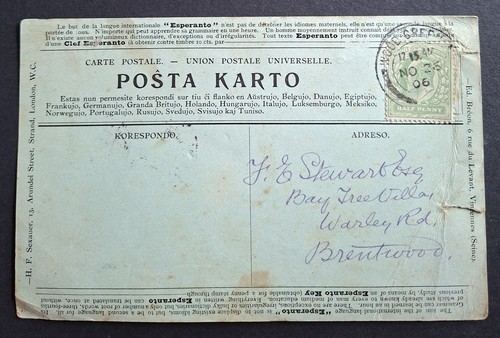 Le but de la langue internationale "Esperanto" n'est pas de détrôner les idiomes maternels, elle n'est qu'une clef de la langue à la
portée de tous. N'importe qui peut apprendre sa grammaire en une heure. Un homme moyennement instruit connait déjà
Il n'existe aucun volumineux dictionnaire, d'exceptions ou d'irrégularités. Tout texte Esperanto peut être compris
d'une Clef Esperanto à obtenir contre timbre 10 cts. par
CARTE POSTALE. — UNION POSTALE UNIVERSELLE.
POŜTA KARTO
Estas nun permesite korespondi sur tiu ĉi flanko en Aŭstrujo, Belgujo, Danujo, Egiptujo,
Frankujo, Germanujo, Granda Britujo, Holando, Hungarujo, Italujo, Luksemburgo, Meksiko,
Norwegujo, Portugalujo, Rusujo, Svedujo, Svisujo kaj Tuniso.
NO 23
06
HALF PENNY
KORESPONDO.
ADRESO.
F. E. Stewart Esq
Bay Tree Villa,
Warley Rd,
Brentwood.
—H. F. Sexauer, 13, Arundel Street, Strand, London, W.C.
Ed. Bréon, 6 rue du Levant, Vincennes (Seine).
The aim of the International Language Esperanto is not to displace existing idioms, but to be a second language for all. Its
grammar can be learned in an hour. There are no exceptions, irregularities or bulky dictionaries, but only number of root words, three-fourths
of which are already known to every man of medium education. Everything written in Esperanto can be translated at once, without
previous study, by means of an Esperanto Key obtainable for a penny stamp through